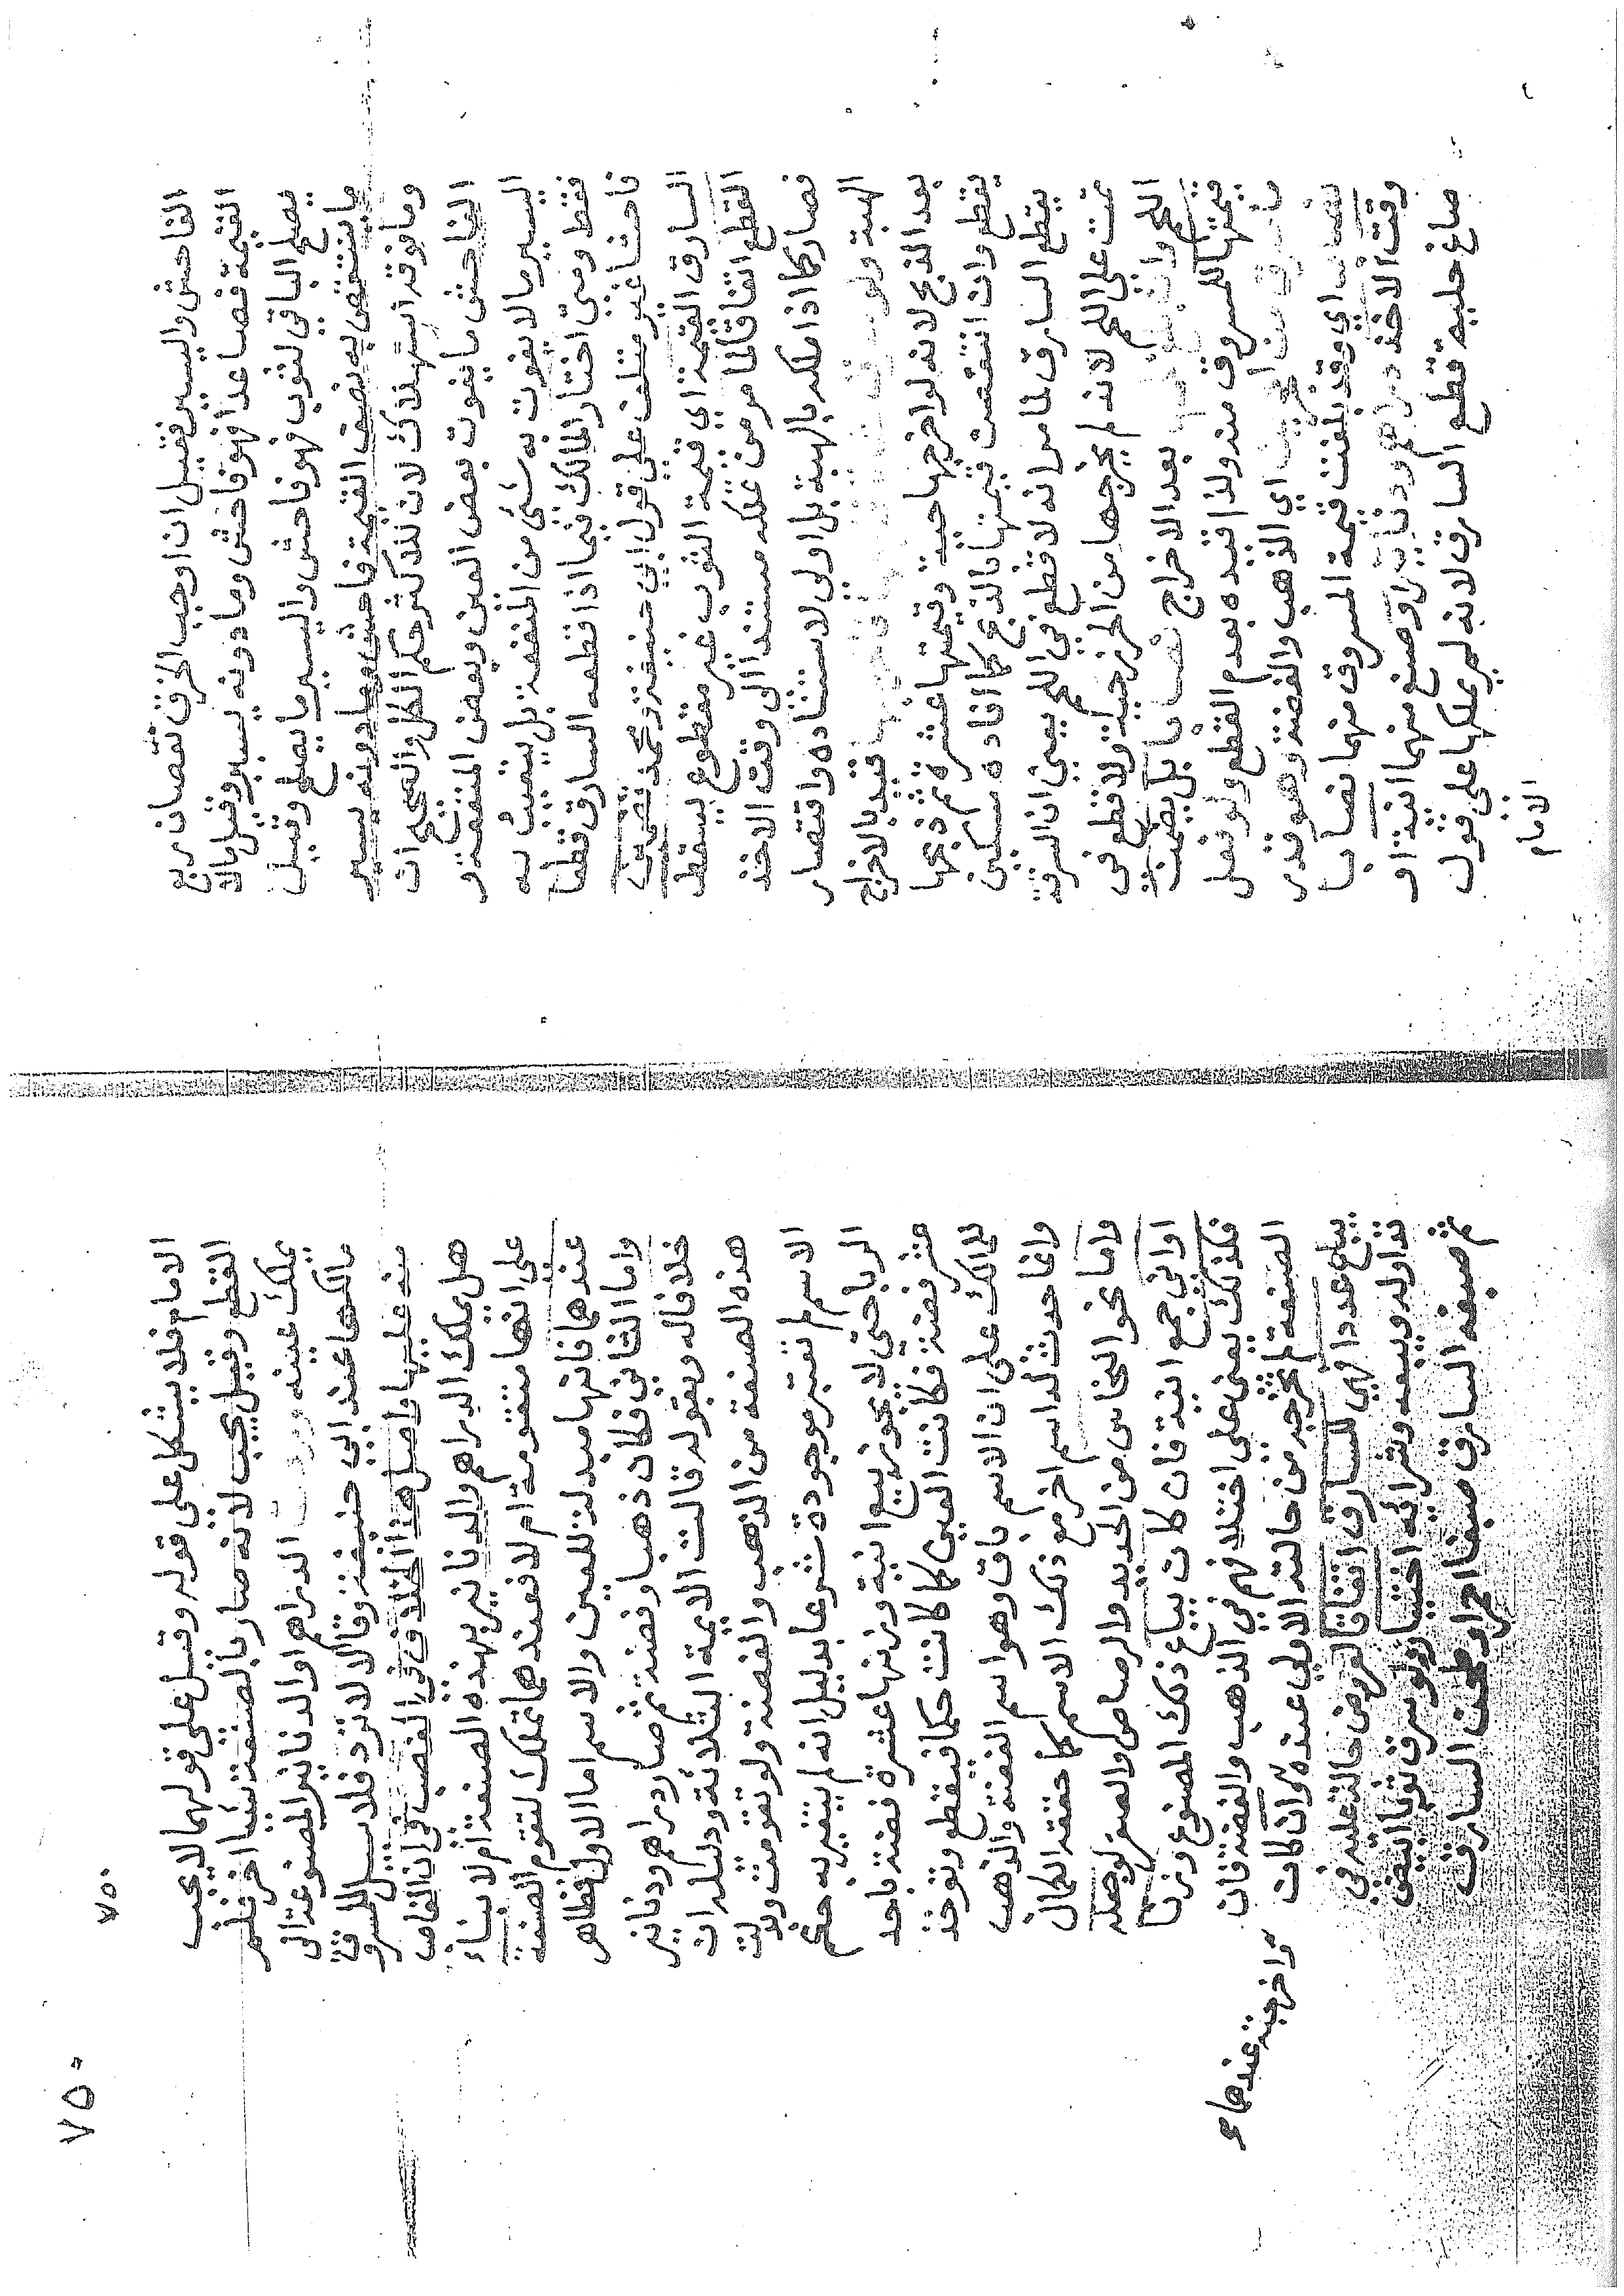 الفاحش واليسير فقيل ان اوجب الخرق نقصان ربع
القيمة فصاعدا فهو فاحش وما دونه يسير وقيل مالا
يصلح الباقي لثوب فهو فاحش واليسير ما يصلح وقيل
ما ينتقص به نصف القيمة فاحش وما دونه يسير
وما فوقه استهلاك لان للاكثر حكم الكل والصحيح ان
الفاحش ما يفوت بعض العين وبعض المنفعة و
اليسير مالا يفوت به شئ من المنفعة بل يتعيب به
فقط ومتى اختار المالك فيما اذا قطعه السارق قطعا
فاحشا غير متلف على قول ابي حنيفة ومحمد تضمين
السارق القيمة اي قيمة الثوب غير مقطوع يسقط
القطع اتفاقا لما مر من تملكه مستندا الى وقت الاخذ
فصار كما اذا ملكه بالهبة بل اولى لاستناده واقتصار
الهبة ولو سرق شاة فذبحها قيد بالاخراج
بعد الذبح لانه لو اخرجها حية وقيمتها عشرة ثم ذبحها
يقطع وان انتقصت قيمتها بالذبح كما افاده مسكين
يقطع السارق لما مر انه لا قطع في اللحم يعني ان السرقة
تمت على اللحم لانه لم يخرجها من الحرز حية ولا قطع في
اللحم وان بعد الاخراج نصابا بل يضمن
قيمتها للمسروق منه ولذا قيده بعدم القطع ولو فعل
ما سرق من الحجرين اي الذهب والفضة وهو قدر
نصاب اي وقد بلغت قيمة المسروق منهما نصابا
وقت الاخذ دراهم ودنانير او صنع منهما انية او
صاغ حلية قطع السارق لانه لم يملكها على قول
الامام
٧٥٠
٧٥٠
الامام فلا يشكل على قوله وقيل على قولهما لا يجب
القطع وقيل يجب لانه صار بالصنعة شيئا اخر فلم
يملك عينه وردت الدراهم او الدنانير المصنوعة الى
مالكها عند ابي حنيفة وقالا لا ترد فلا سبيل للمسروق
منه عليها واصل هذا الخلاف في الغصب في ان الغاصب
هل يملك الدراهم والدنانير بهذه الصنعة ام لا بناء
على انها متقومة ام لا فعندهما تملك لتقوم الصنعة
عندهما فانها مبدلة للعين والاسم اما الاول فظاهر
واما الثاني فكان ذهبا وفضة ثم صار دراهم ودنانير
خلافا له وبقوله قالت الايمة الثلاثة ودليله ان
هذه الصنعة من الذهب والفضة ولو تقومت وبدلت
الاسم لم تعتبر موجودة شرعا بدليل انه لم يتغير به حكم
الربا حتى لا يجوز بيع انية وزنها عشرة فضة باحد
عشر فضة فكانت العين كما كانت حكما فيقطع وتوخذ
للمالك على ان الاسم باق وهو اسم الفضة والذهب
وانما حدث له اسم اخر مع ذلك الاسم كما حققه الكمال
واما نحو النحاس من الحديد والرصاص والصفر لو جعله
اواني جمع انية فان كان يباع ذلك المصنوع وزنا
فكذلك يعني على اختلافهم في الذهب والفضة فان
الصنعة لم تخرجه من حالته الاولى عنده وان كان
واخرجته عندهما ٢
يباع عددا فهي للسارق اتفاقا لعروض حالة عليه في
تداوله وبيعه وشرائه اختيارا ولو سرق ثوبا ابيض
ثم صبغه السارق صبغا احمر او طحن السارق